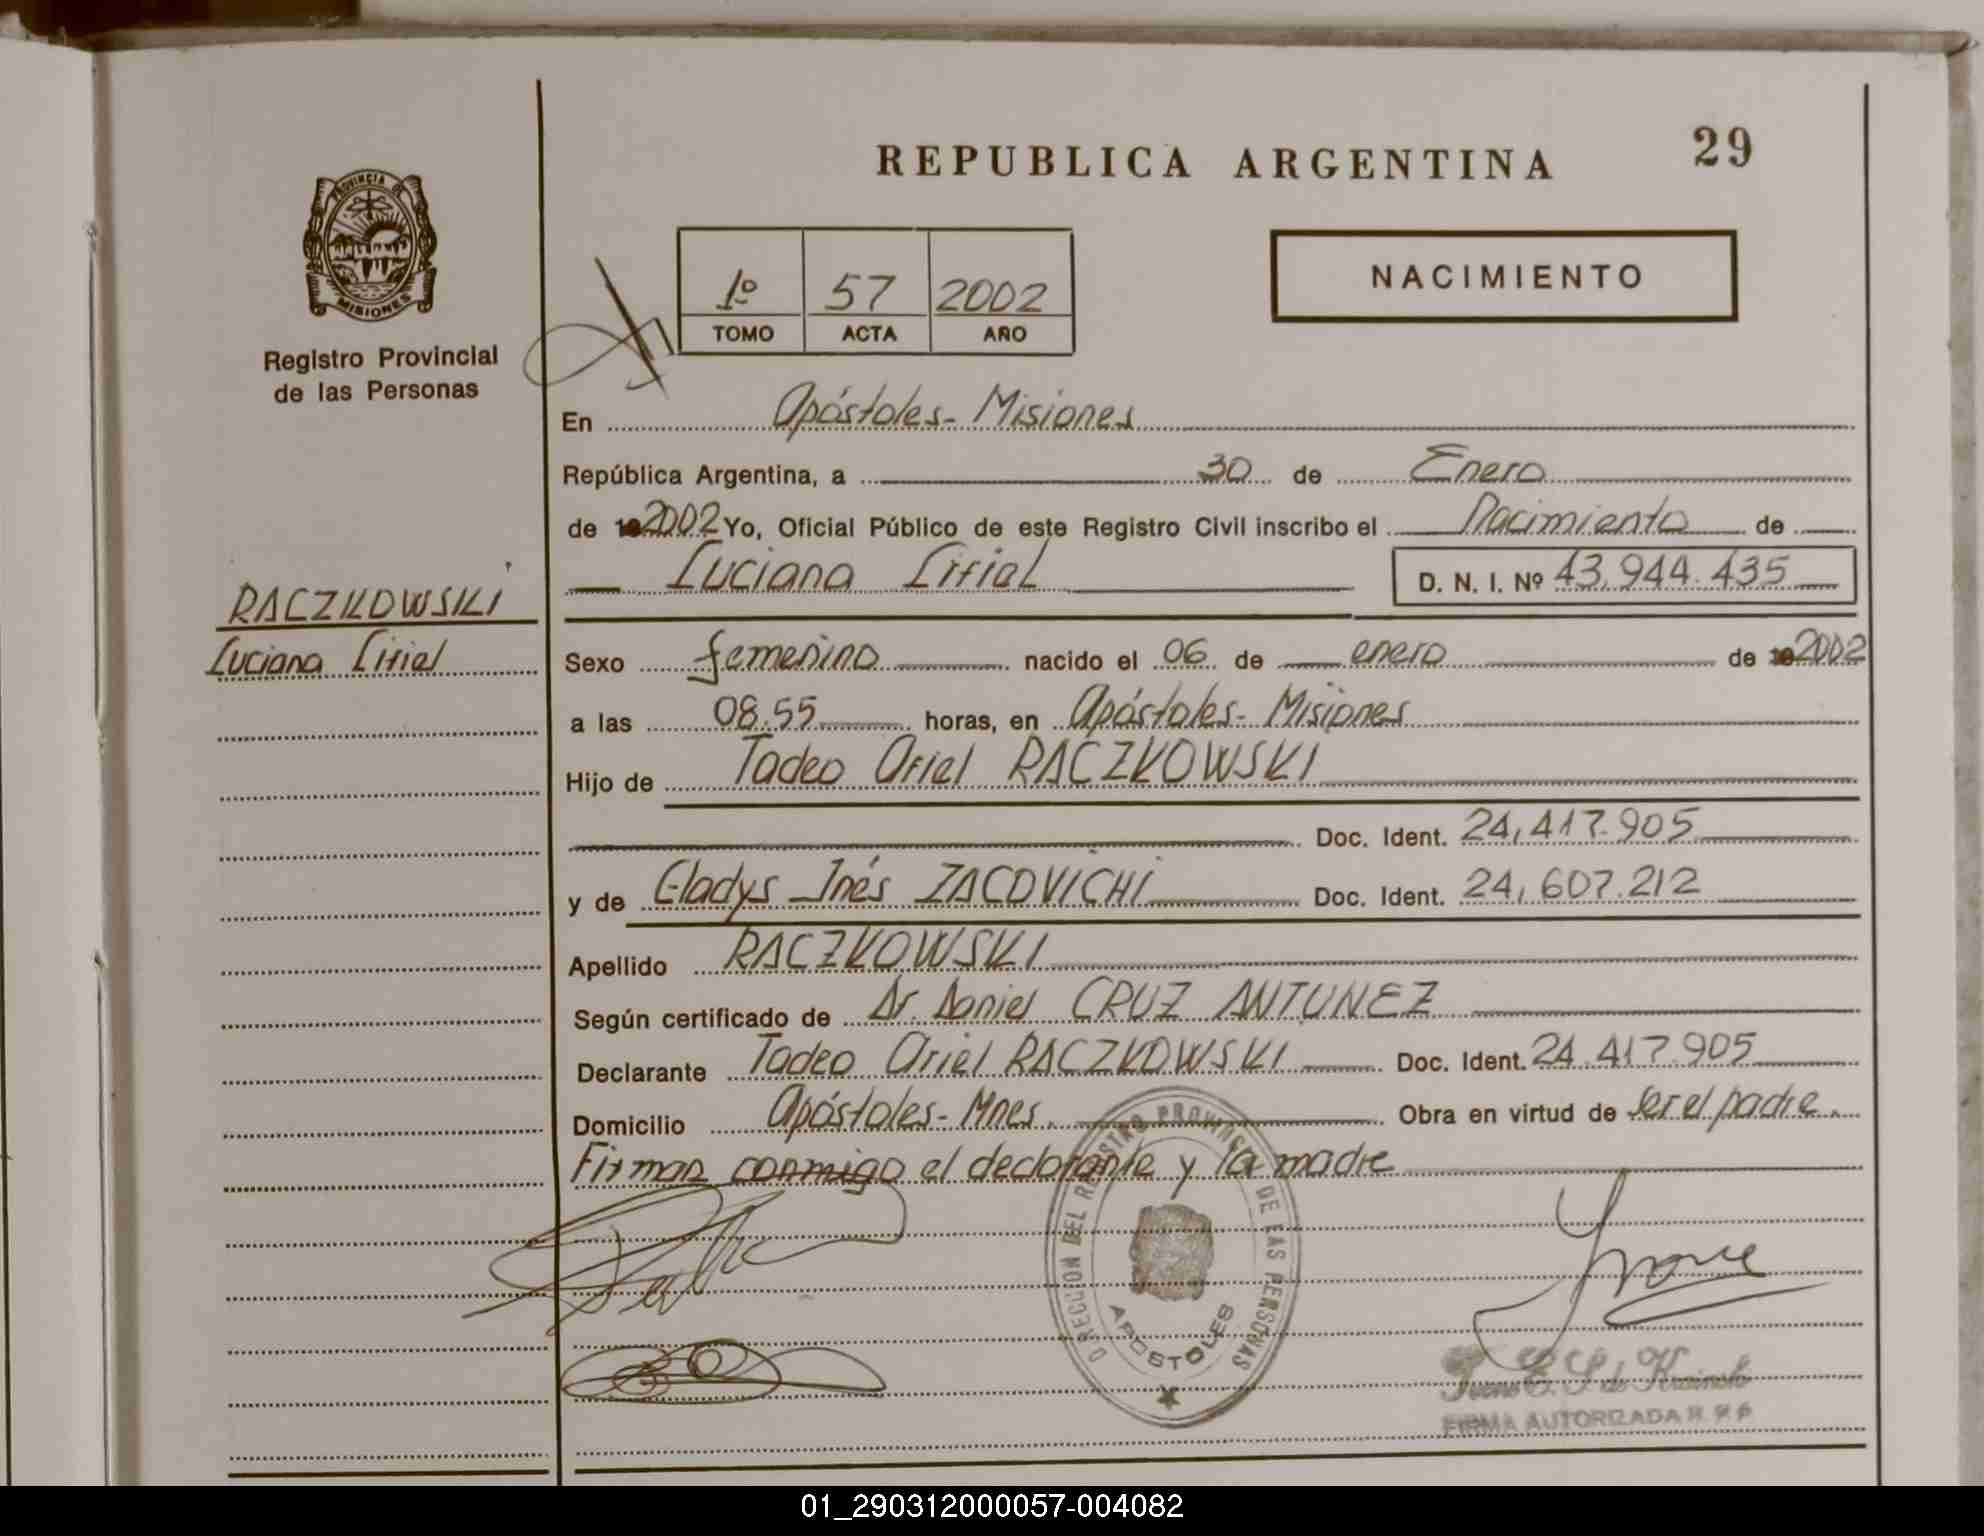 REPUBLICA ARGENTINA
29
PROVINCIA DE
MISIONES
Registro Provincial
de las Personas
1º 57 2002
TOMO ACTA AÑO
NACIMIENTO
En Apóstoles- Misiones
República Argentina, a 30 de Enero
de 2002 Yo, Oficial Público de este Registro Civil inscribo el Nacimiento de
Luciana D. N. I. Nº 43.944.435
RACZKOWSKI
Luciana
Sexo femenino nacido el 06 de enero de 2002
a las 08.55 horas, en Apóstoles- Misiones
Hijo de Tadeo Ariel RACZKOWSKI
Doc. Ident. 24.417.905
y de Gladys Inés ZACOVICHI Doc. Ident. 24.607.212
Apellido RACZKOWSKI
Según certificado de Dr. Daniel CRUZ ANTUNEZ
Declarante Tadeo Ariel RACZKOWSKI Doc. Ident. 24.417.905
Domicilio Apóstoles- Mnes. Obra en virtud de ser el padre.
Firman conmigo el declarante y la madre
DIRECCION DEL REGISTRO PROVINCIAL DE LAS PERSONAS
APOSTOLES
FIRMA AUTORIZADA
01_290312000057-004082